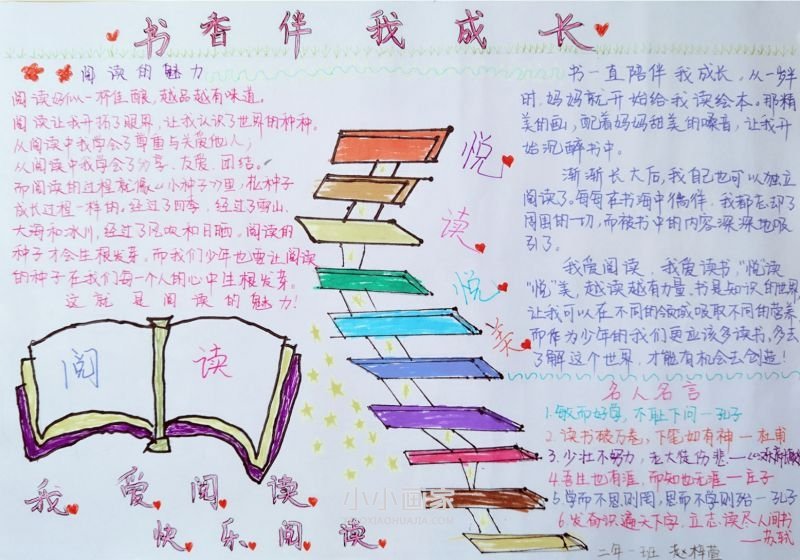 书香伴我成长
阅读的魅力
阅读好似一杯佳酿，越品越有味道。
阅读让我开拓了眼界，让我认识了世界的种种。
从阅读中我学会了尊重与关爱他人；
从阅读中我学会了分享、友爱、团结。
而阅读的过程就像《小种子》里，小种子
成长过程一样的。经过了四季，经过了雪山、
大海和冰川，经过了风吹和日晒。阅读的
种子才会生根发芽。而我们少年也要让阅读
的种子在我们每一个人的心中生根发芽。
这就是阅读的魅力！
阅读
我爱阅读
快乐阅读
悦读悦美
书一直陪伴我成长，从一岁半
时，妈妈就开始给我读绘本。那精
美的画，配着妈妈甜美的嗓音，让我开
始沉醉书中。
渐渐长大后，我自己也可以独立
阅读了。每每在书海中徜徉，我都忘却了
周围的一切，而被书中的内容深深地吸
引了。
我爱阅读，我爱读书，“悦”读
“悦”美，越读越有力量，书是知识的世界
让我可以在不同的领域吸取不同的营养
而作为少年的我们更应该多读书，多去
了解这个世界，才能有机会去创造！
名人名言
1.敏而好学，不耻下问—孔子
2.读书破万卷，下笔如有神—杜甫
3.少壮不努力，老大徒伤悲—
4.吾生也有涯，而知也无涯—庄子
5.学而不思则罔，思而不学则殆—孔子
6.发奋识遍天下字，立志读尽人间书
—苏轼
二年一班
小小画家
XIAOXIAOHUAJIA.COM